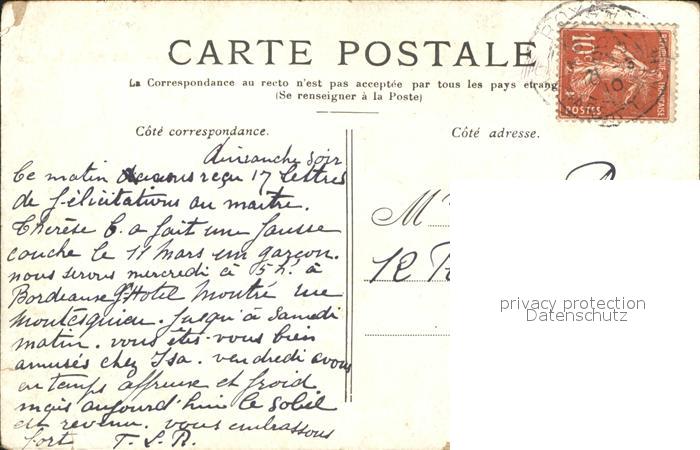 CARTE POSTALE
La Correspondance au recto n'est pas acceptée par tous les pays étrang
(Se renseigner à la Poste)
Côté correspondance.
Côté adresse.
10c
POSTES
REPUBLIQUE FRANÇAISE
dimanche soir
Ce matin reçu 17 lettres
de félicitations au maître.
Thérèse C. a fait une fausse
couche le 11 Mars un garçon.
nous serons mercredi à 5h. à
Bordeaux Hotel Montré rue
Montesquieu. Jusqu'à Samedi
matin. vous êtes-vous bien
amusés chez Isa. vendredi avons
eu temps affreux et froid
mais aujourd'hui le soleil
est revenu. vous embrassons
fort T. S. R.
M
12 R
privacy protection
Datenschutz